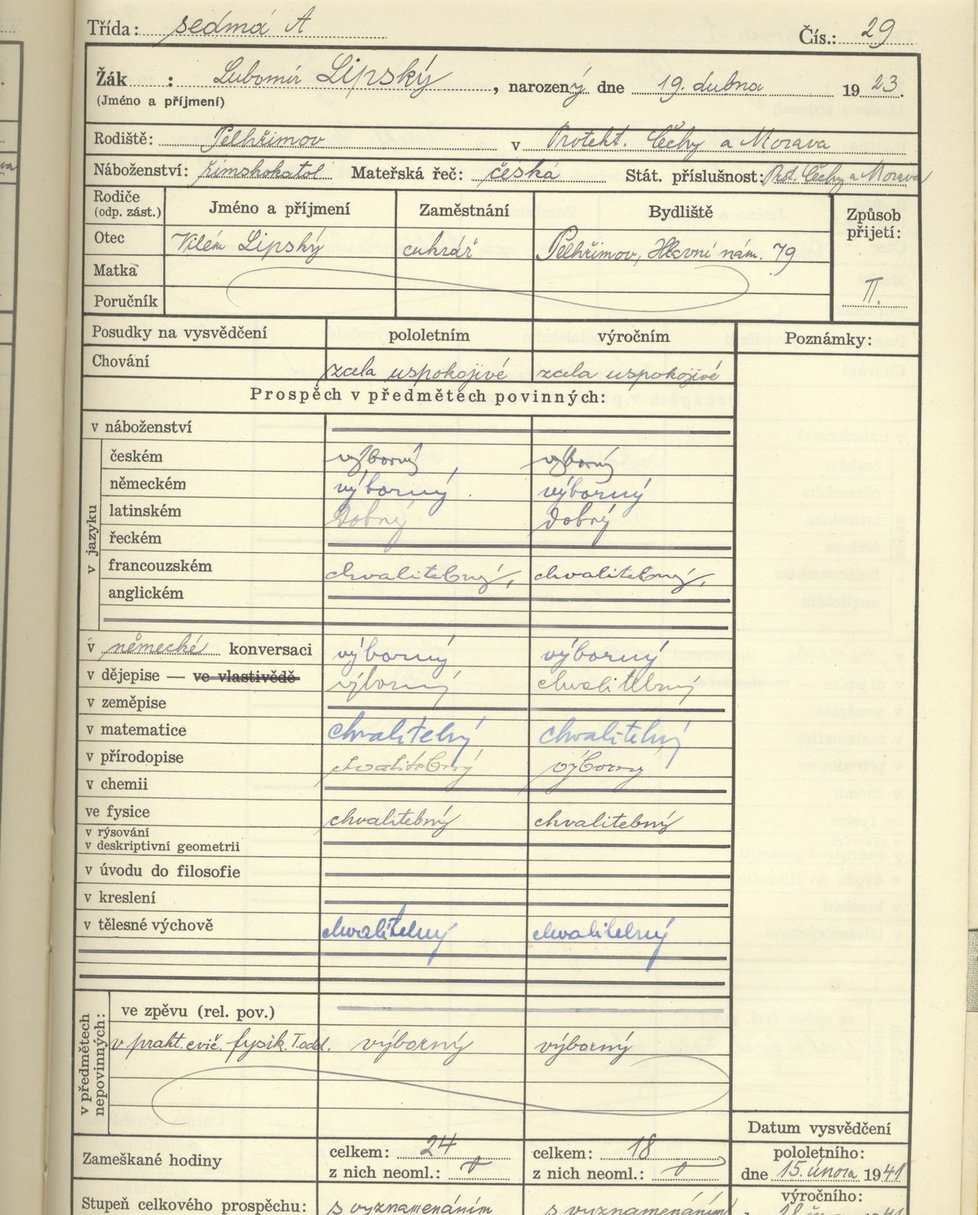 Třída: sedmá A Čís.: 29
Žák : Lubomír Lipský, narozený dne 19. dubna 1923.
(Jméno a příjmení)
Rodiště: Pelhřimov v Protekt. Čechy a Morava
Náboženství: římskokatol Mateřská řeč: česka Stát. příslušnost: Prot. Čechy a Morava
Rodiče (odp. zást.) Jméno a příjmení Zaměstnání Bydliště Způsob přijetí:
Otec Vilém Lipský cukrář Pelhřimov, Hlavní nám. 79
Matka
II.
Poručník
Posudky na vysvědčení pololetním výročním Poznámky:
Chování zcela uspokojivé zcela uspokojivé
Prospěch v předmětech povinných:
v náboženství
v jazyku
českém výborný výborný
německém výborný výborný
latinském Dobrý Dobrý
řeckém
francouzském chvalitebný, chvalitebný,
anglickém
v německé konversaci výborný výborný
v dějepise — ve vlastivědě výborný chvalitebný
v zeměpise
v matematice chvalitebný chvalitebný
v přírodopise chvalitebný výborný
v chemii
ve fysice chvalitebný chvalitebný
v rýsování
v deskriptivní geometrii
v úvodu do filosofie
v kreslení
v tělesné výchově chvalitebný chvalitebný
v předmětech nepovinných:
ve zpěvu (rel. pov.)
v prakt. cvič. fysik. I. odd. výborný výborný
Datum vysvědčení
Zameškané hodiny celkem: 24 celkem: 18 pololetního:
z nich neoml.: 0 z nich neoml.: 0 dne 15. února 1941
výročního:
Stupeň celkového prospěchu: s vyznamenáním s vyznamenáním